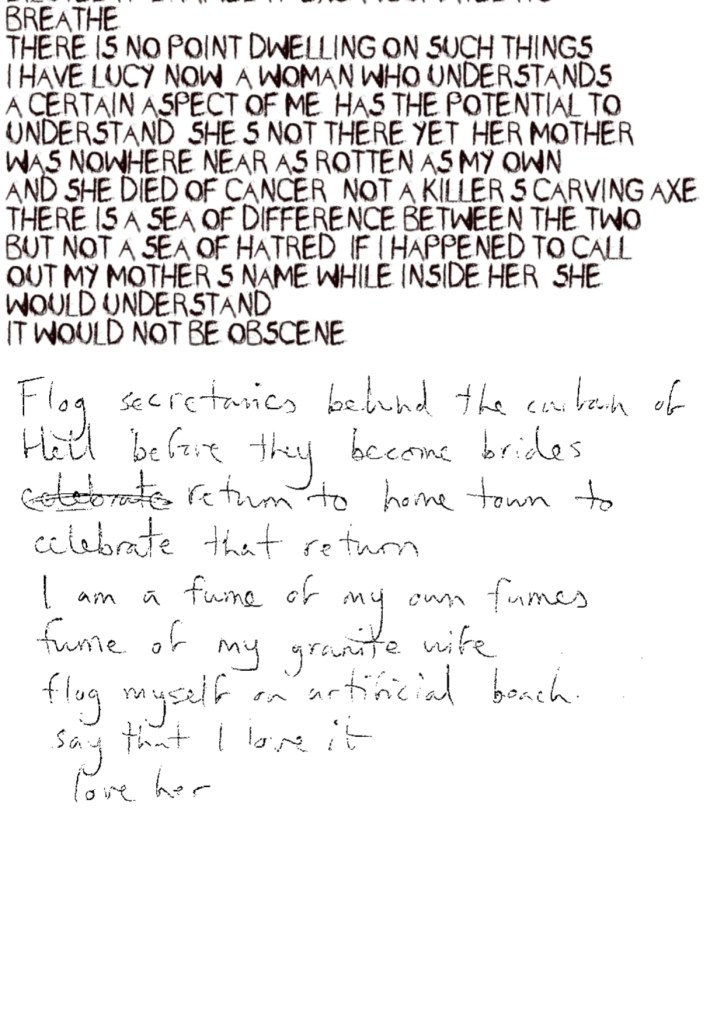 BREATHE
THERE IS NO POINT DWELLING ON SUCH THINGS
I HAVE LUCY NOW A WOMAN WHO UNDERSTANDS
A CERTAIN ASPECT OF ME HAS THE POTENTIAL TO
UNDERSTAND SHE S NOT THERE YET HER MOTHER
WAS NOWHERE NEAR AS ROTTEN AS MY OWN
AND SHE DIED OF CANCER NOT A KILLER S CARVING AXE
THERE IS A SEA OF DIFFERENCE BETWEEN THE TWO
BUT NOT A SEA OF HATRED IF I HAPPENED TO CALL
OUT MY MOTHER S NAME WHILE INSIDE HER SHE
WOULD UNDERSTAND
IT WOULD NOT BE OBSCENE
Flog secretaries behind the curtain of
Hell before they become brides
celebrate return to home town to
celebrate that return
I am a fume of my own fumes
fume of my granite wife
flog myself on artificial beach.
say that I love it
love her